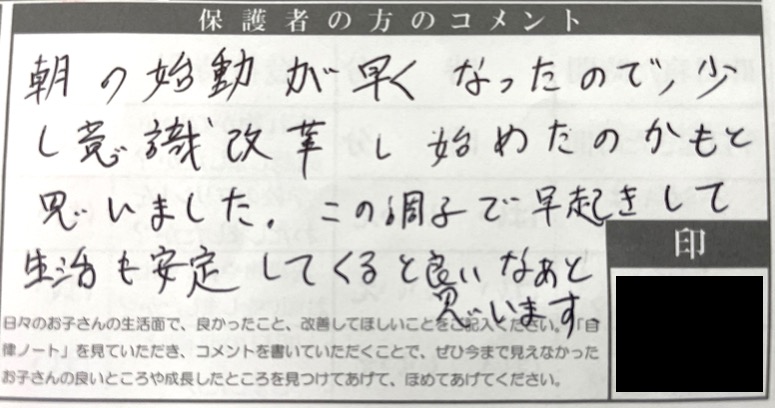 保護者の方のコメント
朝の始動が早くなったので、少
し意識改革し始めたのかもと
思いました。この調子で早起きして
生活も安定してくると良いなあと
思います。
印
日々のお子さんの生活面で、良かったこと、改善してほしいことをご記入ください。「自
律ノート」を見ていただき、コメントを書いていただくことで、ぜひ今まで見えなかった
お子さんの良いところや成長したところを見つけてあげて、ほめてあげてください。